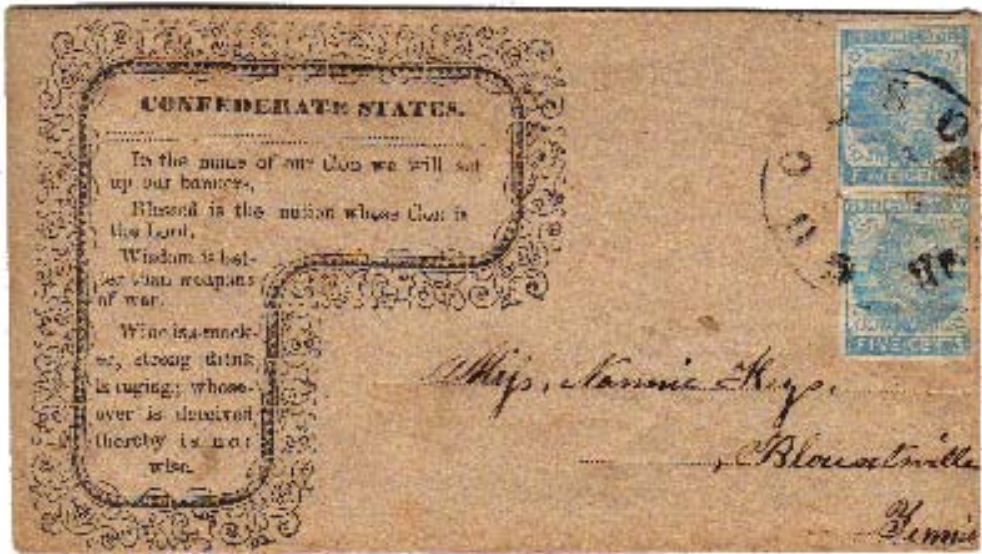 CONFEDERATE STATES.
In the name of our God we will set
up our banners.
Blessed is the nation whose God is
the Lord.
Wisdom is bet-
ter than weapons
of war.
Wine is a mock-
er, strong drink
is raging; whoso-
ever is deceived
thereby is not
wise.
FIVE CENTS
FIVE CENTS
Miss, Nannie Keys,
Blountville
Tenne